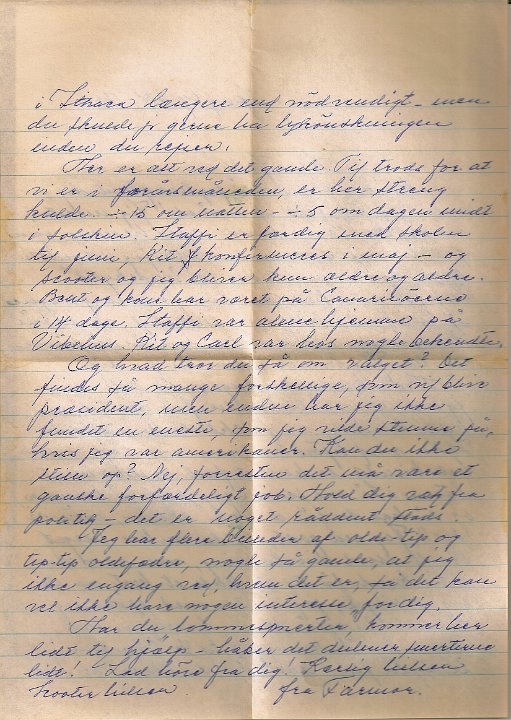 i Ithaca længere end nödvendigt – men
du skulde jo gerne ha lykönskningen
inden du rejser.
Her er alt ved det gamle. Til trods for at
vi er i forårsmåneden, er her streng
kulde. ÷ 15 om natten – ÷ 5 om dagen midt
i solskin. Staffi er færdig med skolen
til juni, Kit konfirmeres i maj – og
Scooter og jeg bliver kun ældre og ældre.
Bent og kone har været på Canariöerne
i 14 dage. Staffi var alene hjemme på
Vibehus. Kit og Carl var hos nogle bekendte.
Og hvad tror du så om valget? Det
findes så mange forskellige, som vil blive
præsident, men endnu har jeg ikke
fundet en eneste, som jeg vilde stemme på,
hvis jeg var amerikaner. Kan du ikke
stille op? Nej, forresten det må være et
ganske forfærdeligt job. Hold dig væk fra
politik – det er noget råddent stads.
Jeg har flere billeder af olde-tip og
tip-tip oldefædre, nogle så gamle, at jeg
ikke engang ved, hvem det er, så det kan
vel ikke have nogen interesse for dig.
Har du lommesmerter, kommer her
lidt til hjælp – håber det dulmer smerterne
lidt! Lad höre fra dig! Kærlig hilsen
Scooter hilsen. fra Farmor.